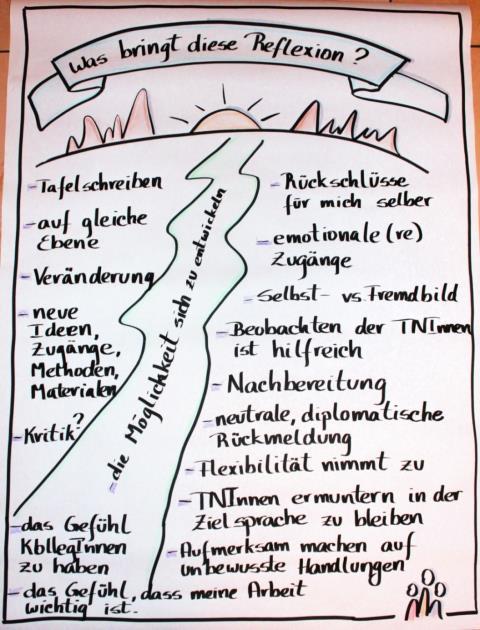 Was bringt diese Reflexion?
- Tafelschreiben
- auf gleiche
Ebene
- Veränderung
- neue
Ideen,
Zugänge,
Methoden,
Materialen
- Kritik?
- das Gefühl
KollegInnen
zu haben
- das Gefühl, dass meine Arbeit
wichtig ist.
- die Möglichkeit sich zu entwickeln
- Rückschlüsse
für mich selber
- emotionale(re)
Zugänge
- Selbst- vs. Fremdbild
- Beobachten der TNInnen
ist hilfreich
- Nachbereitung
- neutrale, diplomatische
Rückmeldung
- Flexibilität nimmt zu
- TNInnen ermuntern in der
Zielsprache zu bleiben
- Aufmerksam machen auf
unbewusste Handlungen